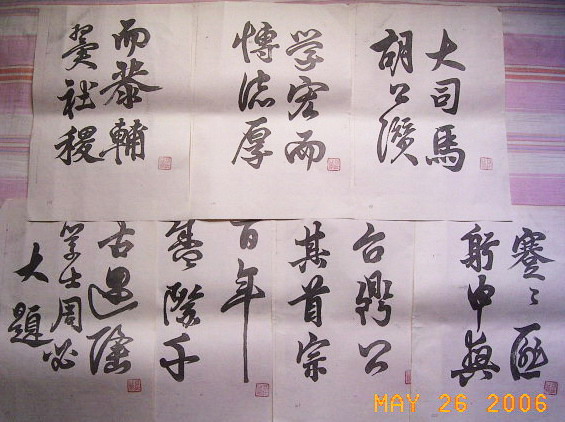 大司馬
胡公讚
学宏而
厚
而恭輔
翼社稷
蹇〻匪
躬中興
台鼎公
其首宗
百年
千
古遇隆
学士周必
大題
MAY 26 2006